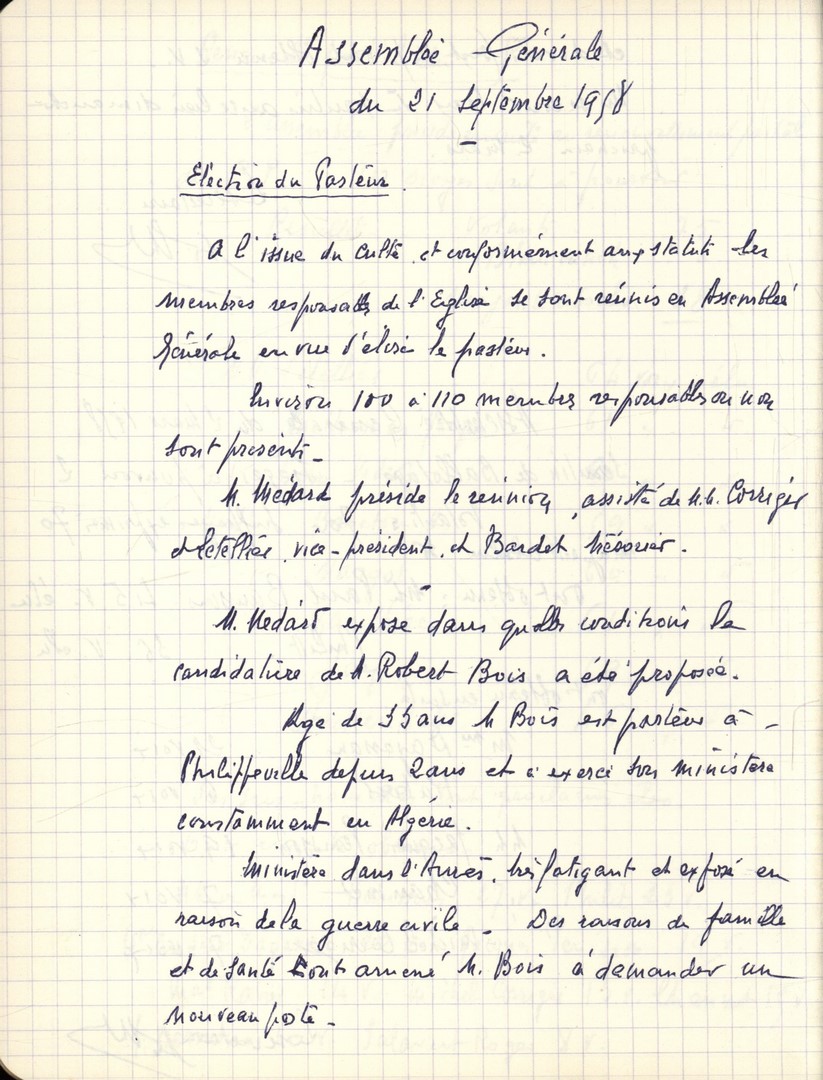 Assemblée Générale
du 21 Septembre 1958
Election du Pasteur.
A l'issue du culte, et conformément aux statuts les
membres responsables de l'Eglise se sont réunis en Assemblée
Générale en vue d'élire le pasteur.
Environ 100 à 110 membres responsables ou non
sont présents.
M. Médard préside la réunion, assisté de M.M. Corriger
et Letellier, vice-président, et Bardet trésorier.
M. Médard expose dans quelles conditions la
candidature de M. Robert Bois a été proposée.
Agé de 35 ans M Bois est pasteur à
Philippeville depuis 2 ans et a exercé son ministère
constamment en Algérie.
Ministère dans l'Aurès, très fatigant et exposé en
raison de la guerre civile. Des raisons de famille
et de santé ont amené M. Bois à demander un
nouveau poste.